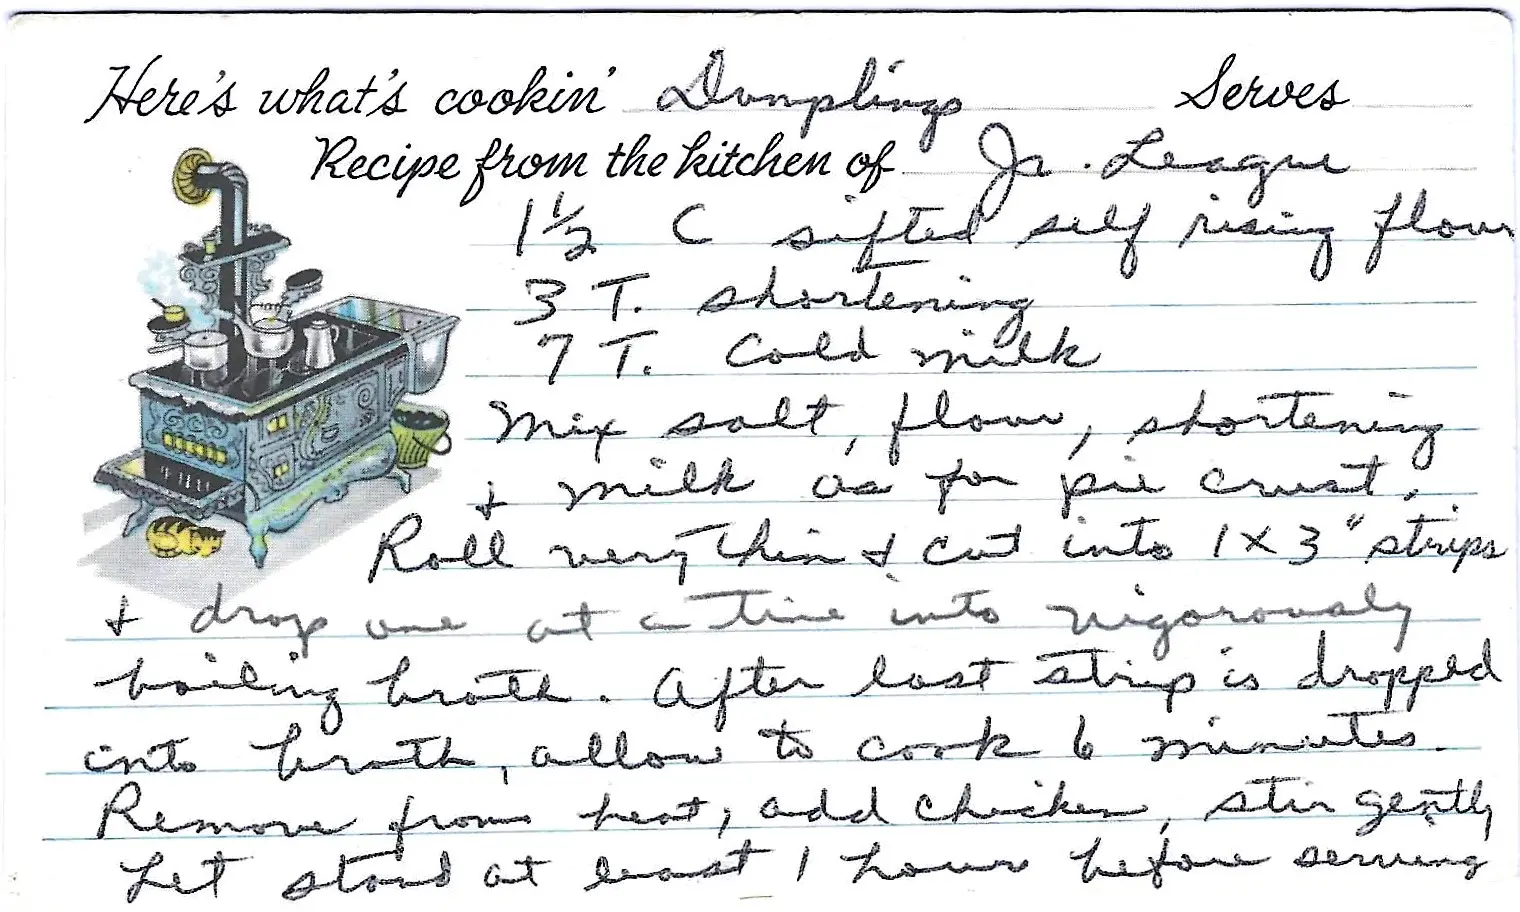 Here's what's cookin' Dumplings Serves
Recipe from the kitchen of Jr. League
1½ C sifted self rising flour
3 T. shortening
7 T. cold milk
Mix salt, flour, shortening
& milk as for pie crust.
Roll very thin & cut into 1 x 3" strips
& drop one at a time into vigorously
boiling broth. After last strip is dropped
into broth, allow to cook 6 minutes.
Remove from heat, add chicken, stir gently
Let stand at least 1 hour before serving